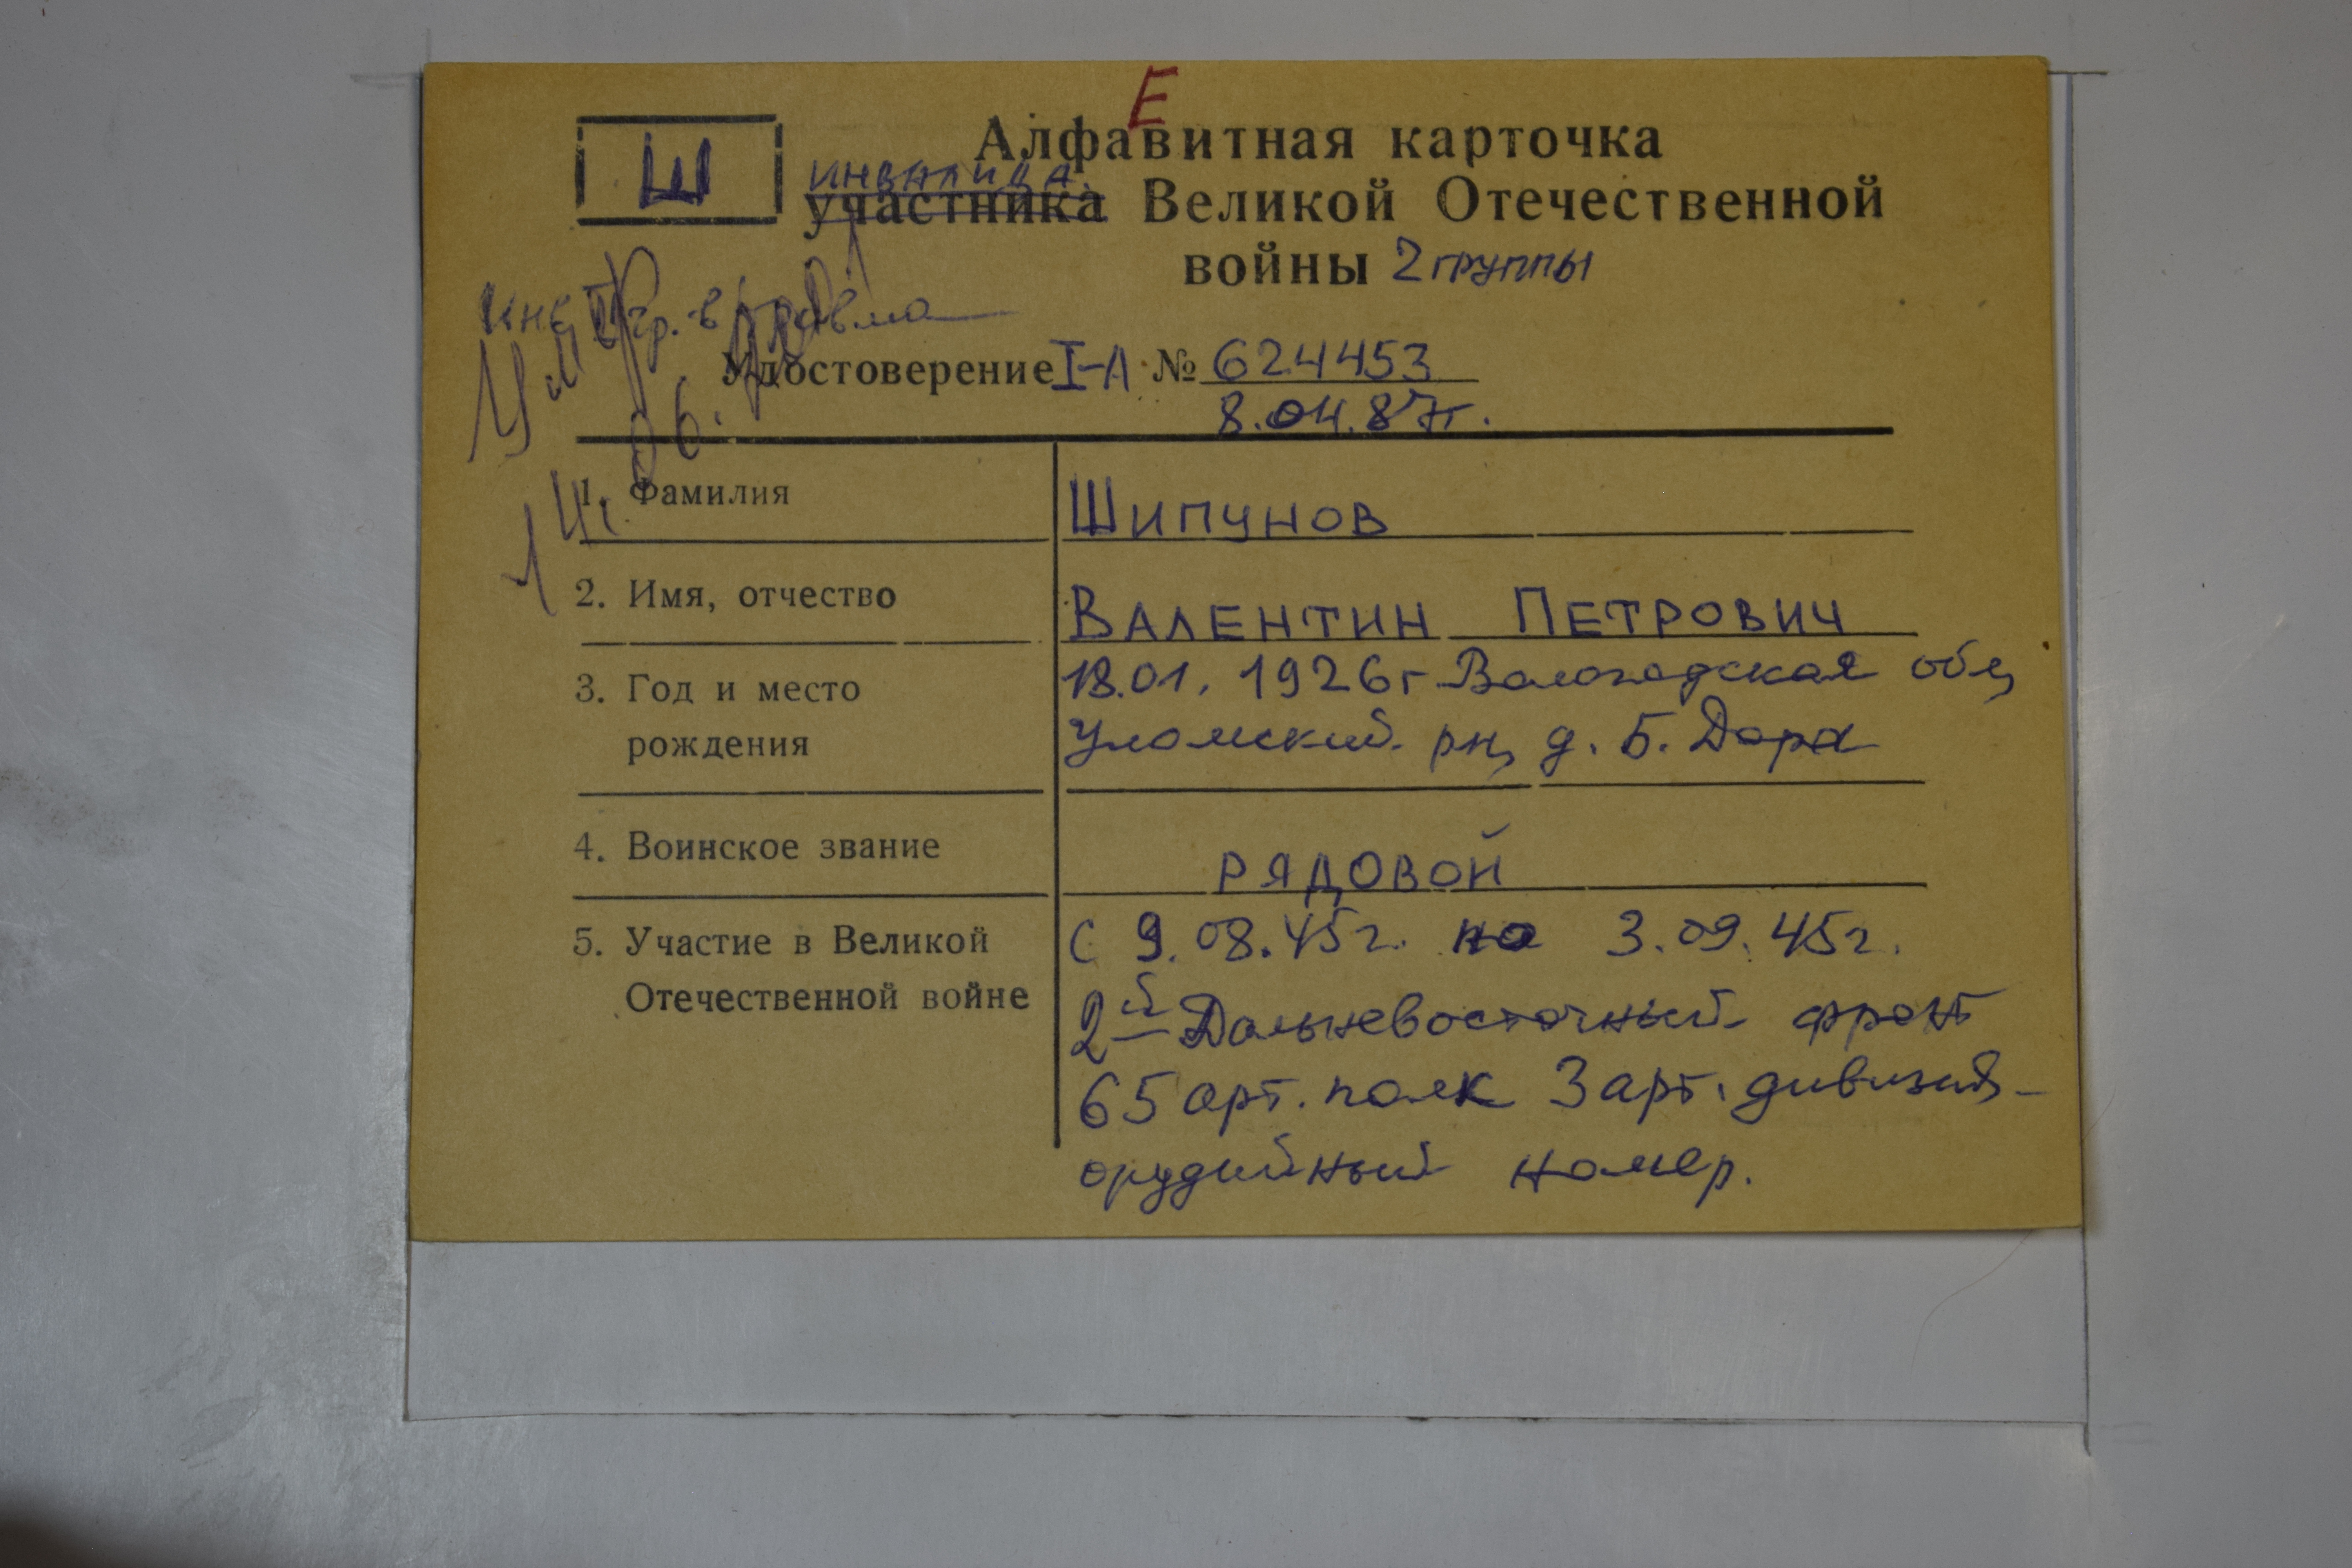 Е
Алфавитная карточка
Ш
инвалида
участника Великой Отечественной
войны 2 группы
инв II гр. - в травма
Умер
Удостоверение I-А № 624453
8.04.87г.
1. Фамилия
Шипунов
2. Имя, отчество
Валентин Петрович
3. Год и место
рождения
18.01.1926г Вологодская обл,
Уломский рн, д. Б. Дора
4. Воинское звание
рядовой
5. Участие в Великой
Отечественной войне
с 9.08.45г. по 3.09.45г.
2й Дальневосточный фронт
65 арт. полк 3 арт. дивизия -
орудийный номер.